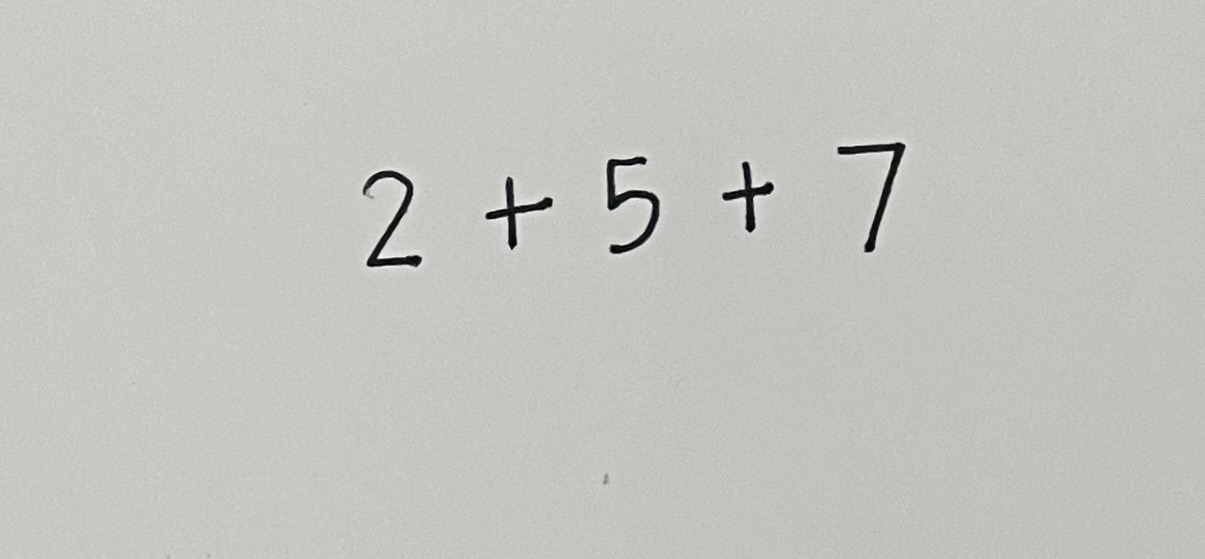 2 + 5 + 7